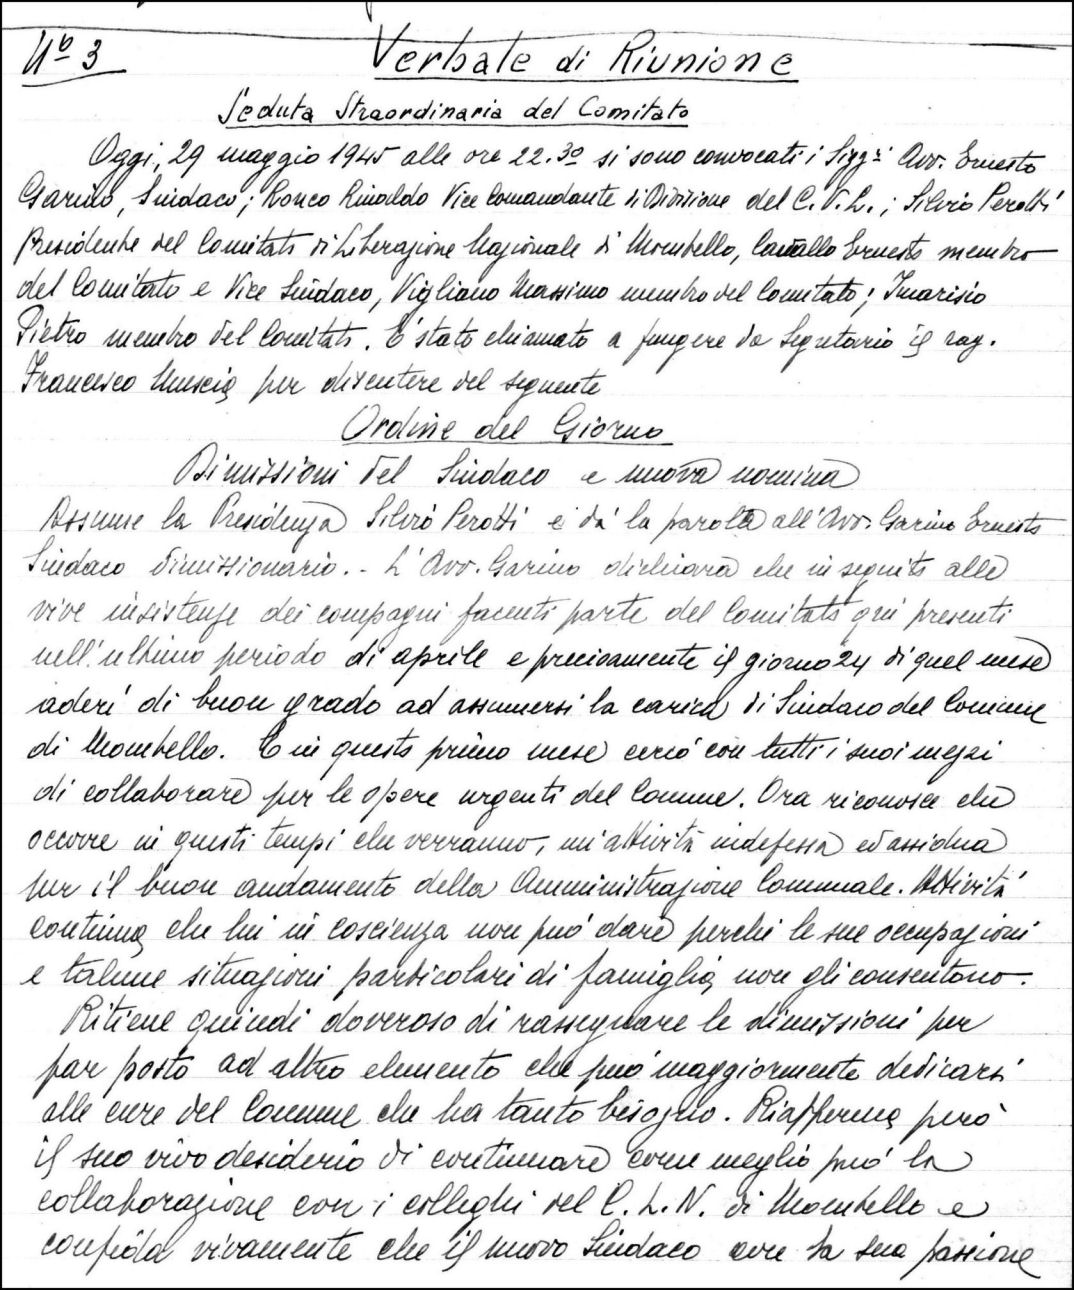 Nº 3
Verbale di Riunione
Seduta Straordinaria del Comitato
Oggi, 29 maggio 1945 alle ore 22.30 si sono convocati i Sigg.ri Avv. Ernesto
Garino, Sindaco; Ronco Rinaldo Vice Comandante di Divisione del C.V.L.; Silvio Perotti
Presidente del Comitato di Liberazione Nazionale di Mombello, Cavallo Ernesto membro
del Comitato e Vice Sindaco, Vigliano Massimo membro del Comitato; Imarisio
Pietro membro del Comitato. È stato chiamato a fungere da Segretario il rag.
Francesco per discutere del seguente
Ordine del Giorno
Dimissioni del Sindaco e nuova nomina
Assume la Presidenza Silvio Perotti e dà la parola all'Avv. Garino Ernesto
Sindaco dimissionario. - L'Avv. Garino dichiara che in seguito alle
vive insistenze dei compagni facenti parte del Comitato qui presenti
nell'ultimo periodo di aprile e precisamente il giorno 24 di quel mese
aderì di buon grado ad assumersi la carica di Sindaco del Comune
di Mombello. E in questo primo mese cercò con tutti i suoi mezzi
di collaborare per le opere urgenti del Comune. Ora riconosce che
occorre in questi tempi che verranno, un'attività indefessa ed assidua
per il buon andamento della Amministrazione Comunale. Attività
continua che lui in coscienza non può dare perché le sue occupazioni
e talune situazioni particolari di famiglia non gli consentono.
Ritiene quindi doveroso di rassegnare le dimissioni per
far posto ad altro elemento che può maggiormente dedicarsi
alle cure del Comune che ha tanto bisogno. Riafferma però
il suo vivo desiderio di continuare come meglio può la
collaborazione con i colleghi del C.L.N. di Mombello e
confida vivamente che il nuovo Sindaco con la sua passione